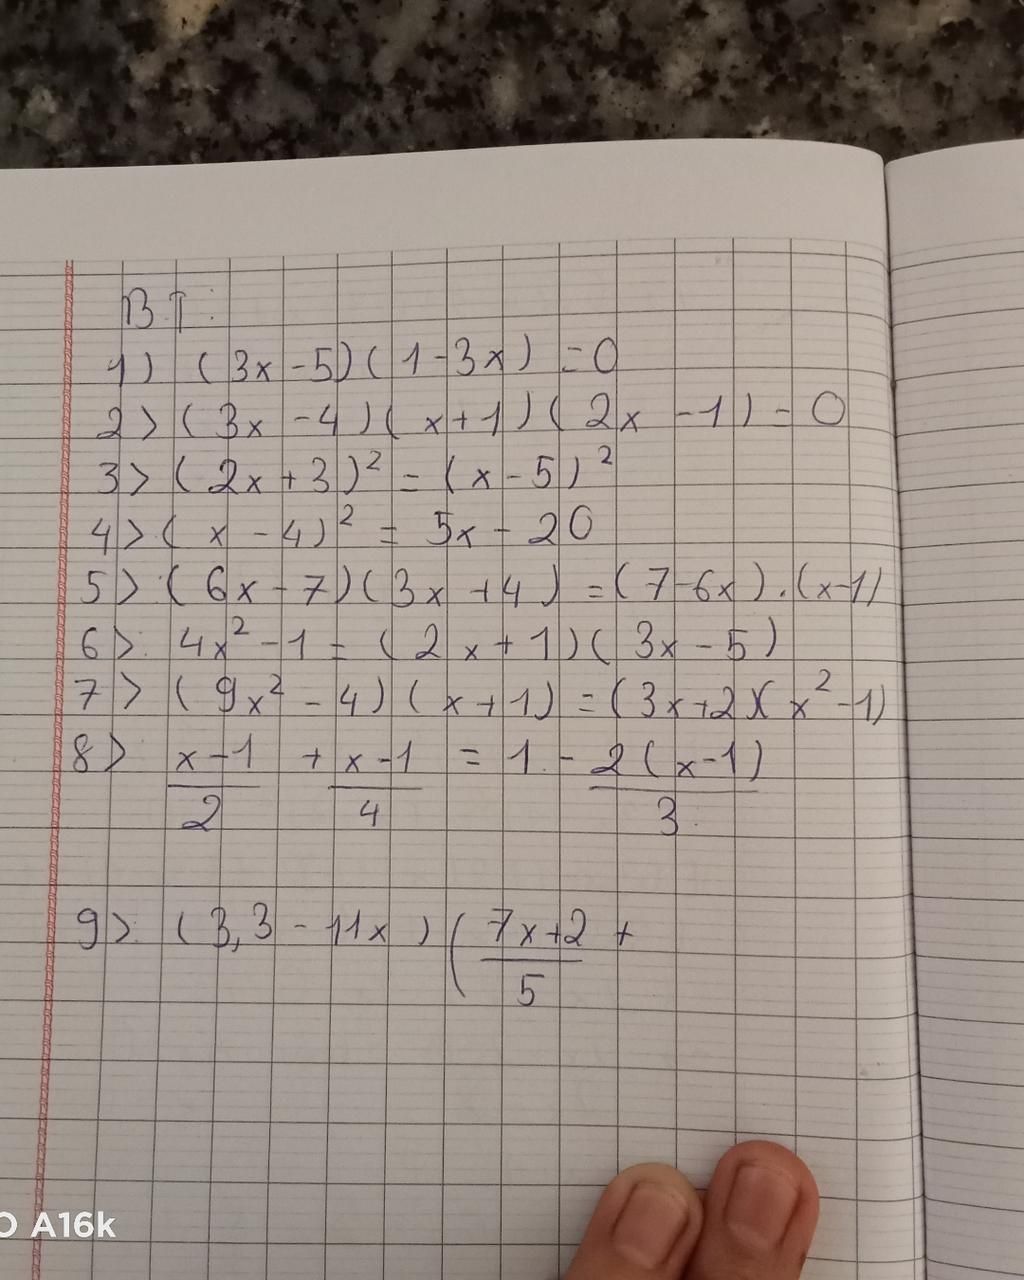 BT:
1) (3x - 5)(1 - 3x) = 0
2> (3x - 4)(x + 1)(2x - 1) = 0
3> (2x + 3)² = (x - 5)²
4> (x - 4)² = 5x - 20
5> (6x - 7)(3x + 4) = (7 - 6x).(x - 1)
6> 4x² - 1 = (2x + 1)(3x - 5)
7> (9x² - 4)(x + 1) = (3x + 2)(x² - 1)
8> (x - 1)/2 + (x - 1)/4 = 1 - 2(x - 1)/3
9> (3,3 - 11x)((7x + 2)/5 +
A16k